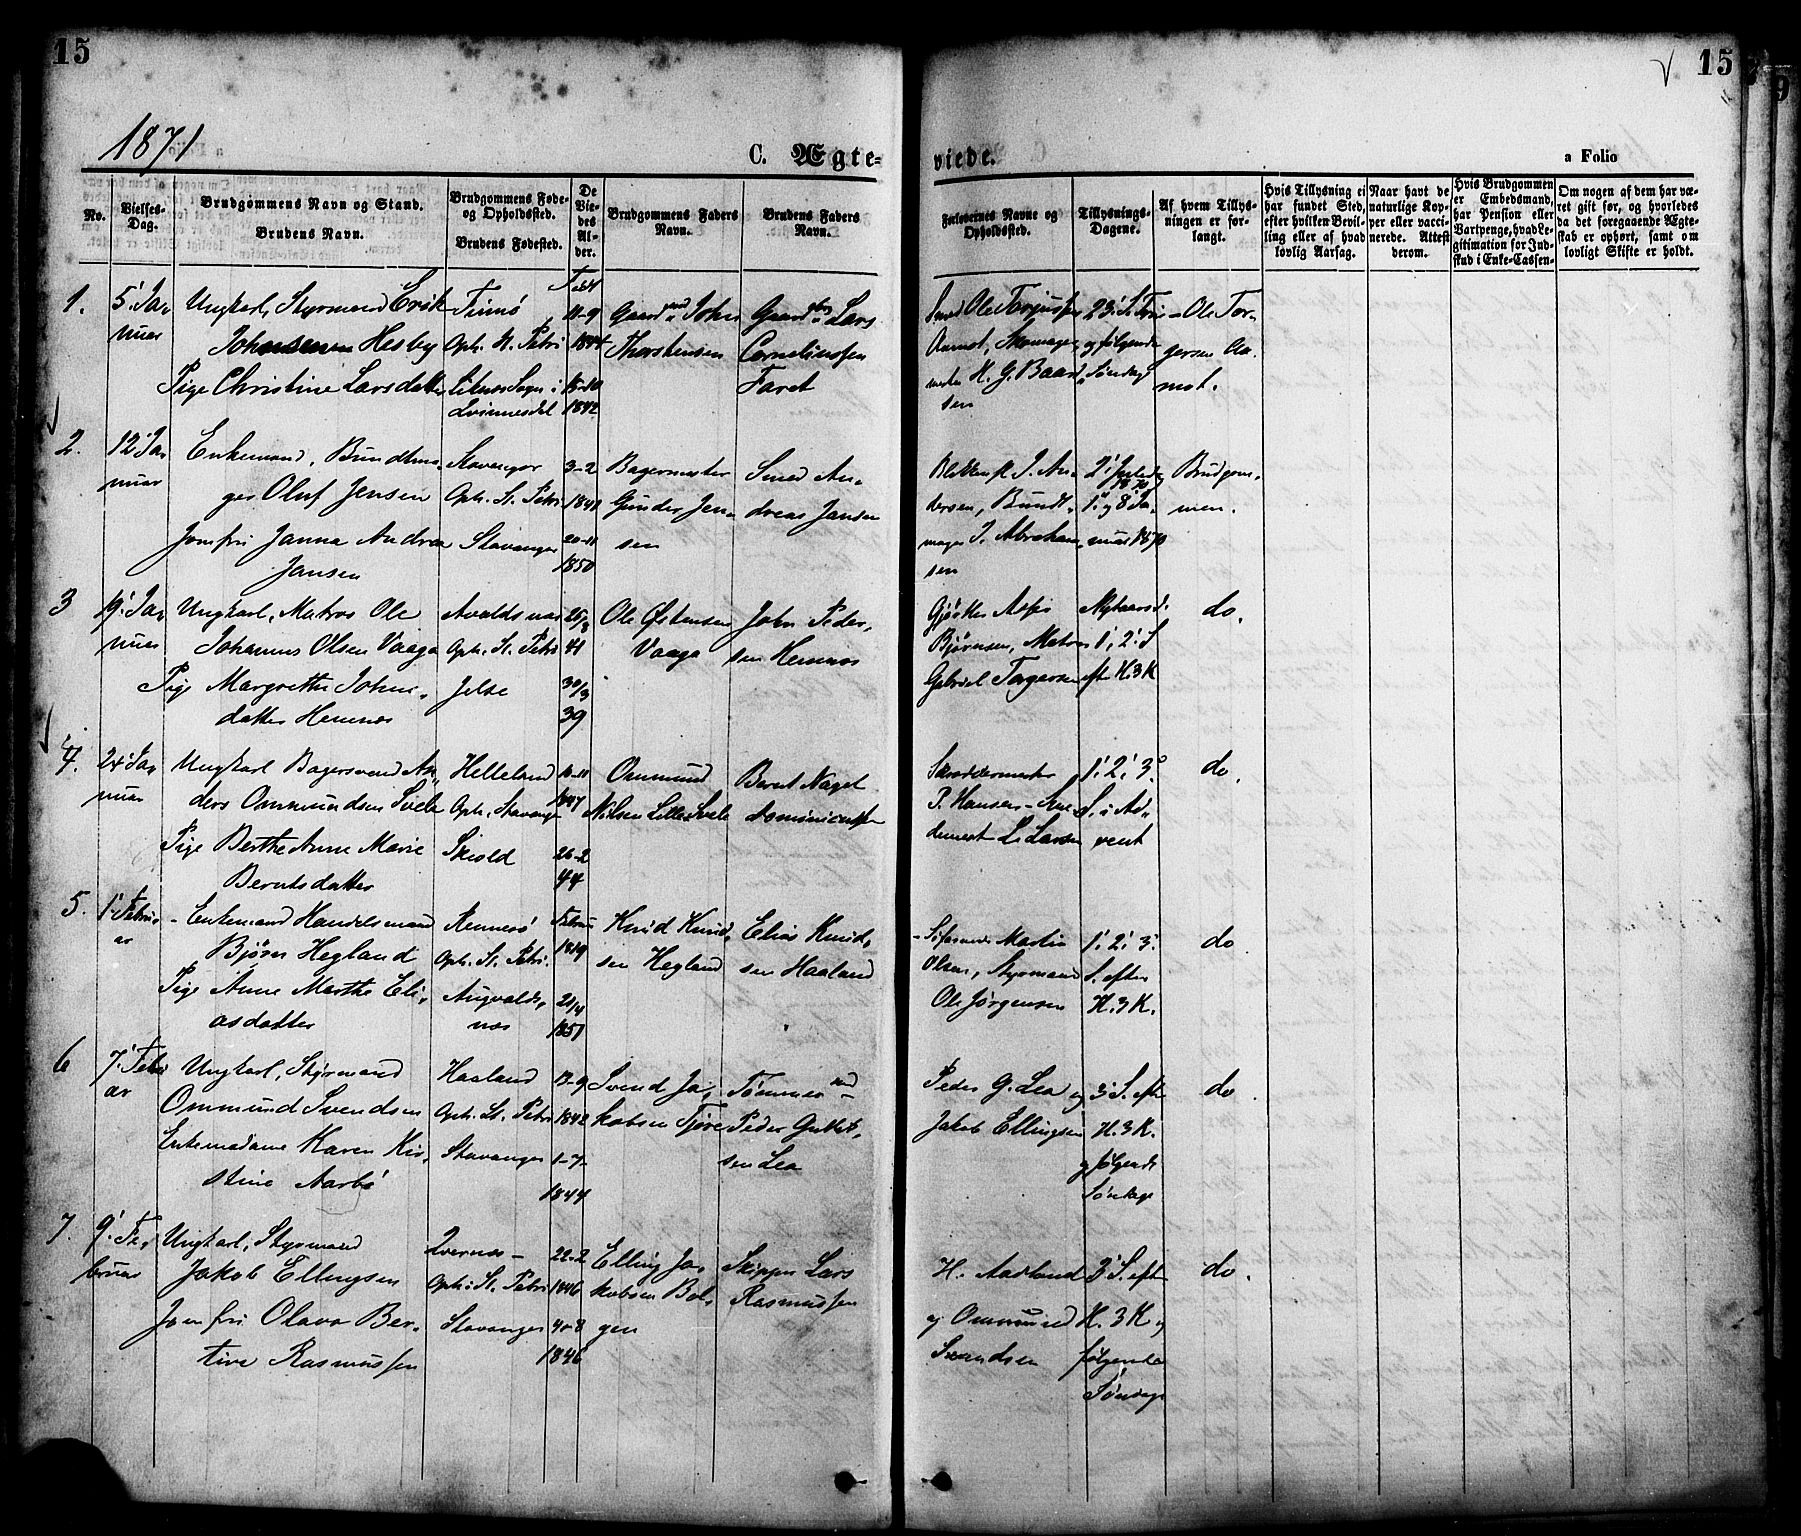 15
15
1871
C. Ægte-
viede.
a Folio
No.
Vielses-
Dag.
Brudgommens Navn og Stand.
Brudens Navn.
Brudgommens Føde-
og Opholdssted.
Brudens Fødested.
De
Vie-
des
Al-
der.
Brudgommens Faders
Navn.
Brudens Faders
Navn.
Forlovernes Navne og
Opholdssted.
Tillysnings-
Dagene.
Af hvem Tillys-
ningen er for-
langt.
Hvis Tillysning ei
har fundet Sted,
efter hvilken Bevil-
ling eller af hvad
lovlig Aarsag.
Naar havt de
naturlige Kop-
per eller vacci-
nerede. Attest
derom.
Hvis Brudgommen
er Embedsmand,
har Pension eller
Vartpenge, hvad Le-
gitimation for Ind-
skud i Enke-Cassen-
Om nogen af dem har væ-
ret gift før, og hvorledes
da det foregaaende Ægte-
skab er ophørt, samt om
lovligt Skifte er holdt.
Født
1. 5' Ja-
nuar
Ungkarl, Styrmand Erik
Johnsen Hesby
Pige Christine Larsdatter
Finnø
Oph. St. Petri
Qvinnesdal
11-9
1844
15-10
1842
Gaardmd John
Thorstensen
Lars
Corneliussen
Faret
Smed Ole Torjussen
Aamot, Skomager
mester H. G. Baard
sen
og følgende
Søndage
Ole Tor-
gersen Aa-
mot.
2. 12' Ja-
nuar
Enkemand, Bundtma-
ger Oluf Jensen
Jomfru Janna Andrea
Jansen
Stavanger
Oph. St. Petri
Stavanger
3-2
1841
20-11
1850
Bagermester
Gunder Jen-
sen
Smed An-
dreas Jansen
J. An-
dersen, Bundt-
mager J. Abraham
sen
2' Juledag
1870
1' og 8' Ja-
nuar 1870
Brudgom-
men.
3 19' Ja-
nuar
Ungkarl, Matros Ole
Johannes Olsen Vaaga
Pige Margrethe Johns-
datter Hemnæs
Avaldsnæs
Oph. St. Petri
Jelse
25/8
41
30/3
39
Ole Østensen
Vaaga
John Peder-
sen Hemnæs
Bjørnsen, Matros
Gabriel Torgersen
Nytaarsd.
1', 2' S
eft H. 3 K
do.
4. 24' Ja-
nuar
Ungkarl Bagersvend An-
ders Ommundsen Svela
Pige Berthe Anne Marie
Berntsdatter
Helleland
Oph. Stavanger
Skiold
1847
26-2
44
Ommund
Nilsen Lille Svela
Bernt Naget
Skræddermester
P. Hansen
L. Larsen
1' 2' 3'
S. i Ad-
vent
do.
5. 1' Febru-
ar
Enkemand Handelsmand
Bjørn Hegland
Pige Anne Marthe Eli-
asdatter
Rennesø
Oph. St. Petri
Augvalds-
næs
1819
21/4
1851
Knud Knud-
sen Hegland
Elias Knud-
sen Haaland
Martin
Olsen, Styrmand
Ole Jørgensen
1' 2' 3'
S. efter
H. 3 K.
do
6 7' Febru
ar
Ungkarl, Styrmand
Ommund Svendsen
Enkemadame Karen Kir-
stine Aarbø
Haaland
Oph. St. Petri
Stavanger
13-9
1842
1-7-
1844
Svend Ja-
kobsen Tjøre
Tømmermd
Peder Guttorm-
sen Lea
Peder G. Lea og
Jakob Ellingsen
3' S. efter
H. 3 K.
og følgende
Søndage
do
7. 9' Fe-
bruar
Ungkarl, Styrmand
Jakob Ellingsen
Jomfru Olava Ber-
tine Rasmussen
Qvernæs
Oph: St. Petri
Stavanger
22-2
1846
1846
Elling Ja-
kobsen Bol-
gen
Skipper Lars
Rasmussen
H. Aadland
og Ommund
Svendsen
3' S. eft
H. 3 K og
følgende
Søndage
do.